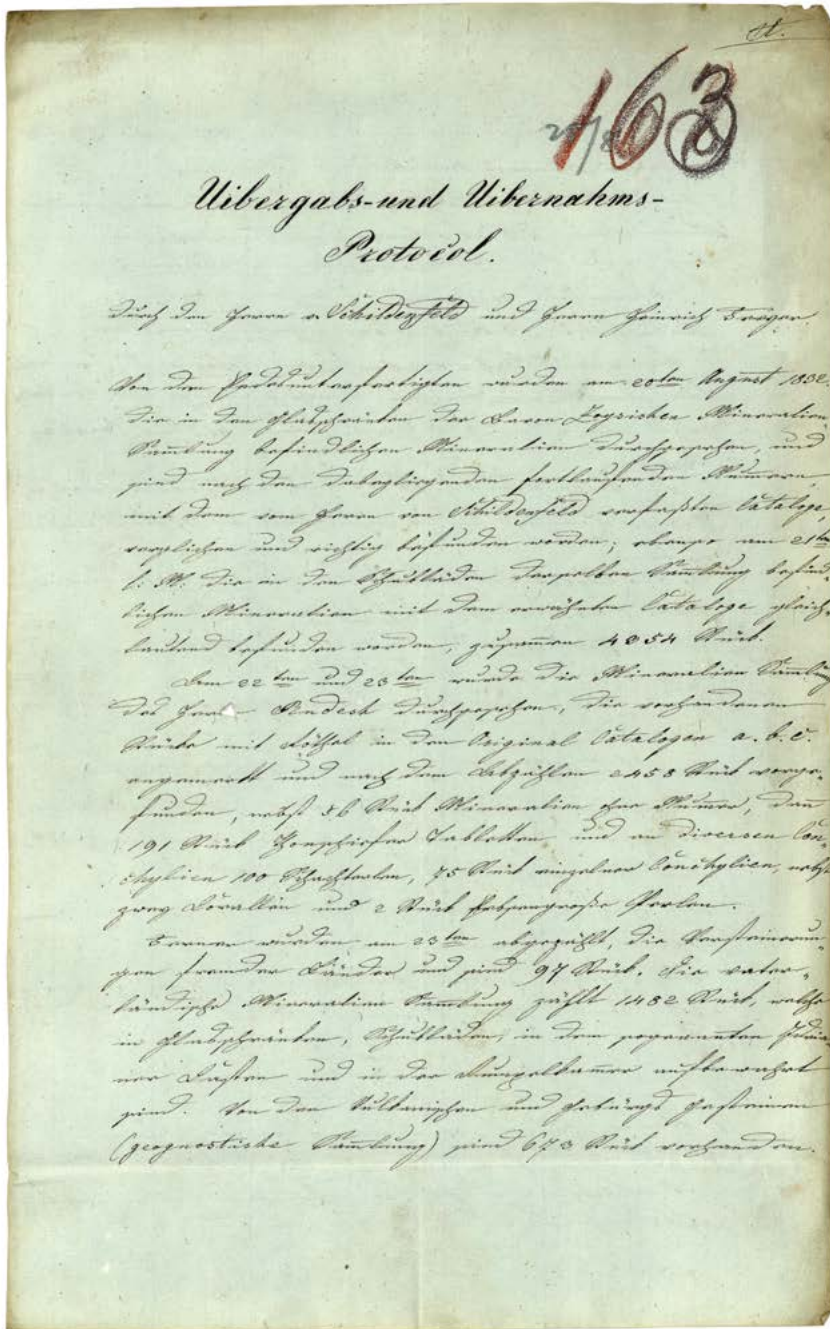 A.
163
20/8
Uibergabs-und Uibernahms-
Protocol.
durch den Herrn v. Schildenfeld und Herrn Heinrich Freyer.
Von den Endesunterfertigten wurden am 20ten August 1832.
die in den Glasschränken der Baron Zoysischen Mineralien
Sammlung befindlichen Mineralien durchgesehen, und
sind nach den dabeyliegenden fortlaufenden Nummern,
mit dem vom Herrn von Schildenfeld verfaßten Cataloge,
verglichen und richtig befunden worden; ebenso am 21ten
l: M: die in den Schubläden derselben Sammlung befind-
lichen Mineralien mit dem erwähnten Cataloge gleich-
lautend befunden worden, zusammen 4354 Stück.
Am 22ten und 23ten wurde die Mineralien Sammlung
des Herrn durchgesehen, die vorhandenen
Stücke mit Röthel in den Original Catalogen a. b. c.
angemerkt und nach dem Abzählen 2458 Stück vorge-
funden, nebst 56 Stück Mineralien ohne Nummer, dann
191 Stück Thonschiefer Tabletten und an diversen Con-
chylien 100 Schachterln, 75 Stück einzelner Conchylien, nebst
zwey Corallen und 2 Stück Erbsengroße Perlen.
Ferner wurden am 23ten abgezählt, die Versteinerun-
gen fremder Länder und sind 97 Stück. Die vater-
ländische Mineralien Sammlung zählt 1482 Stück, welche
in Glasschränken, Schubläden, in dem sogenannten Idria-
ner Kasten und in der Rumpelkammer aufbewahrt
sind. Von den Vulkanischen und Gebirgs Gesteinen
(geognostische Sammlung) sind 673 Stück vorhanden.